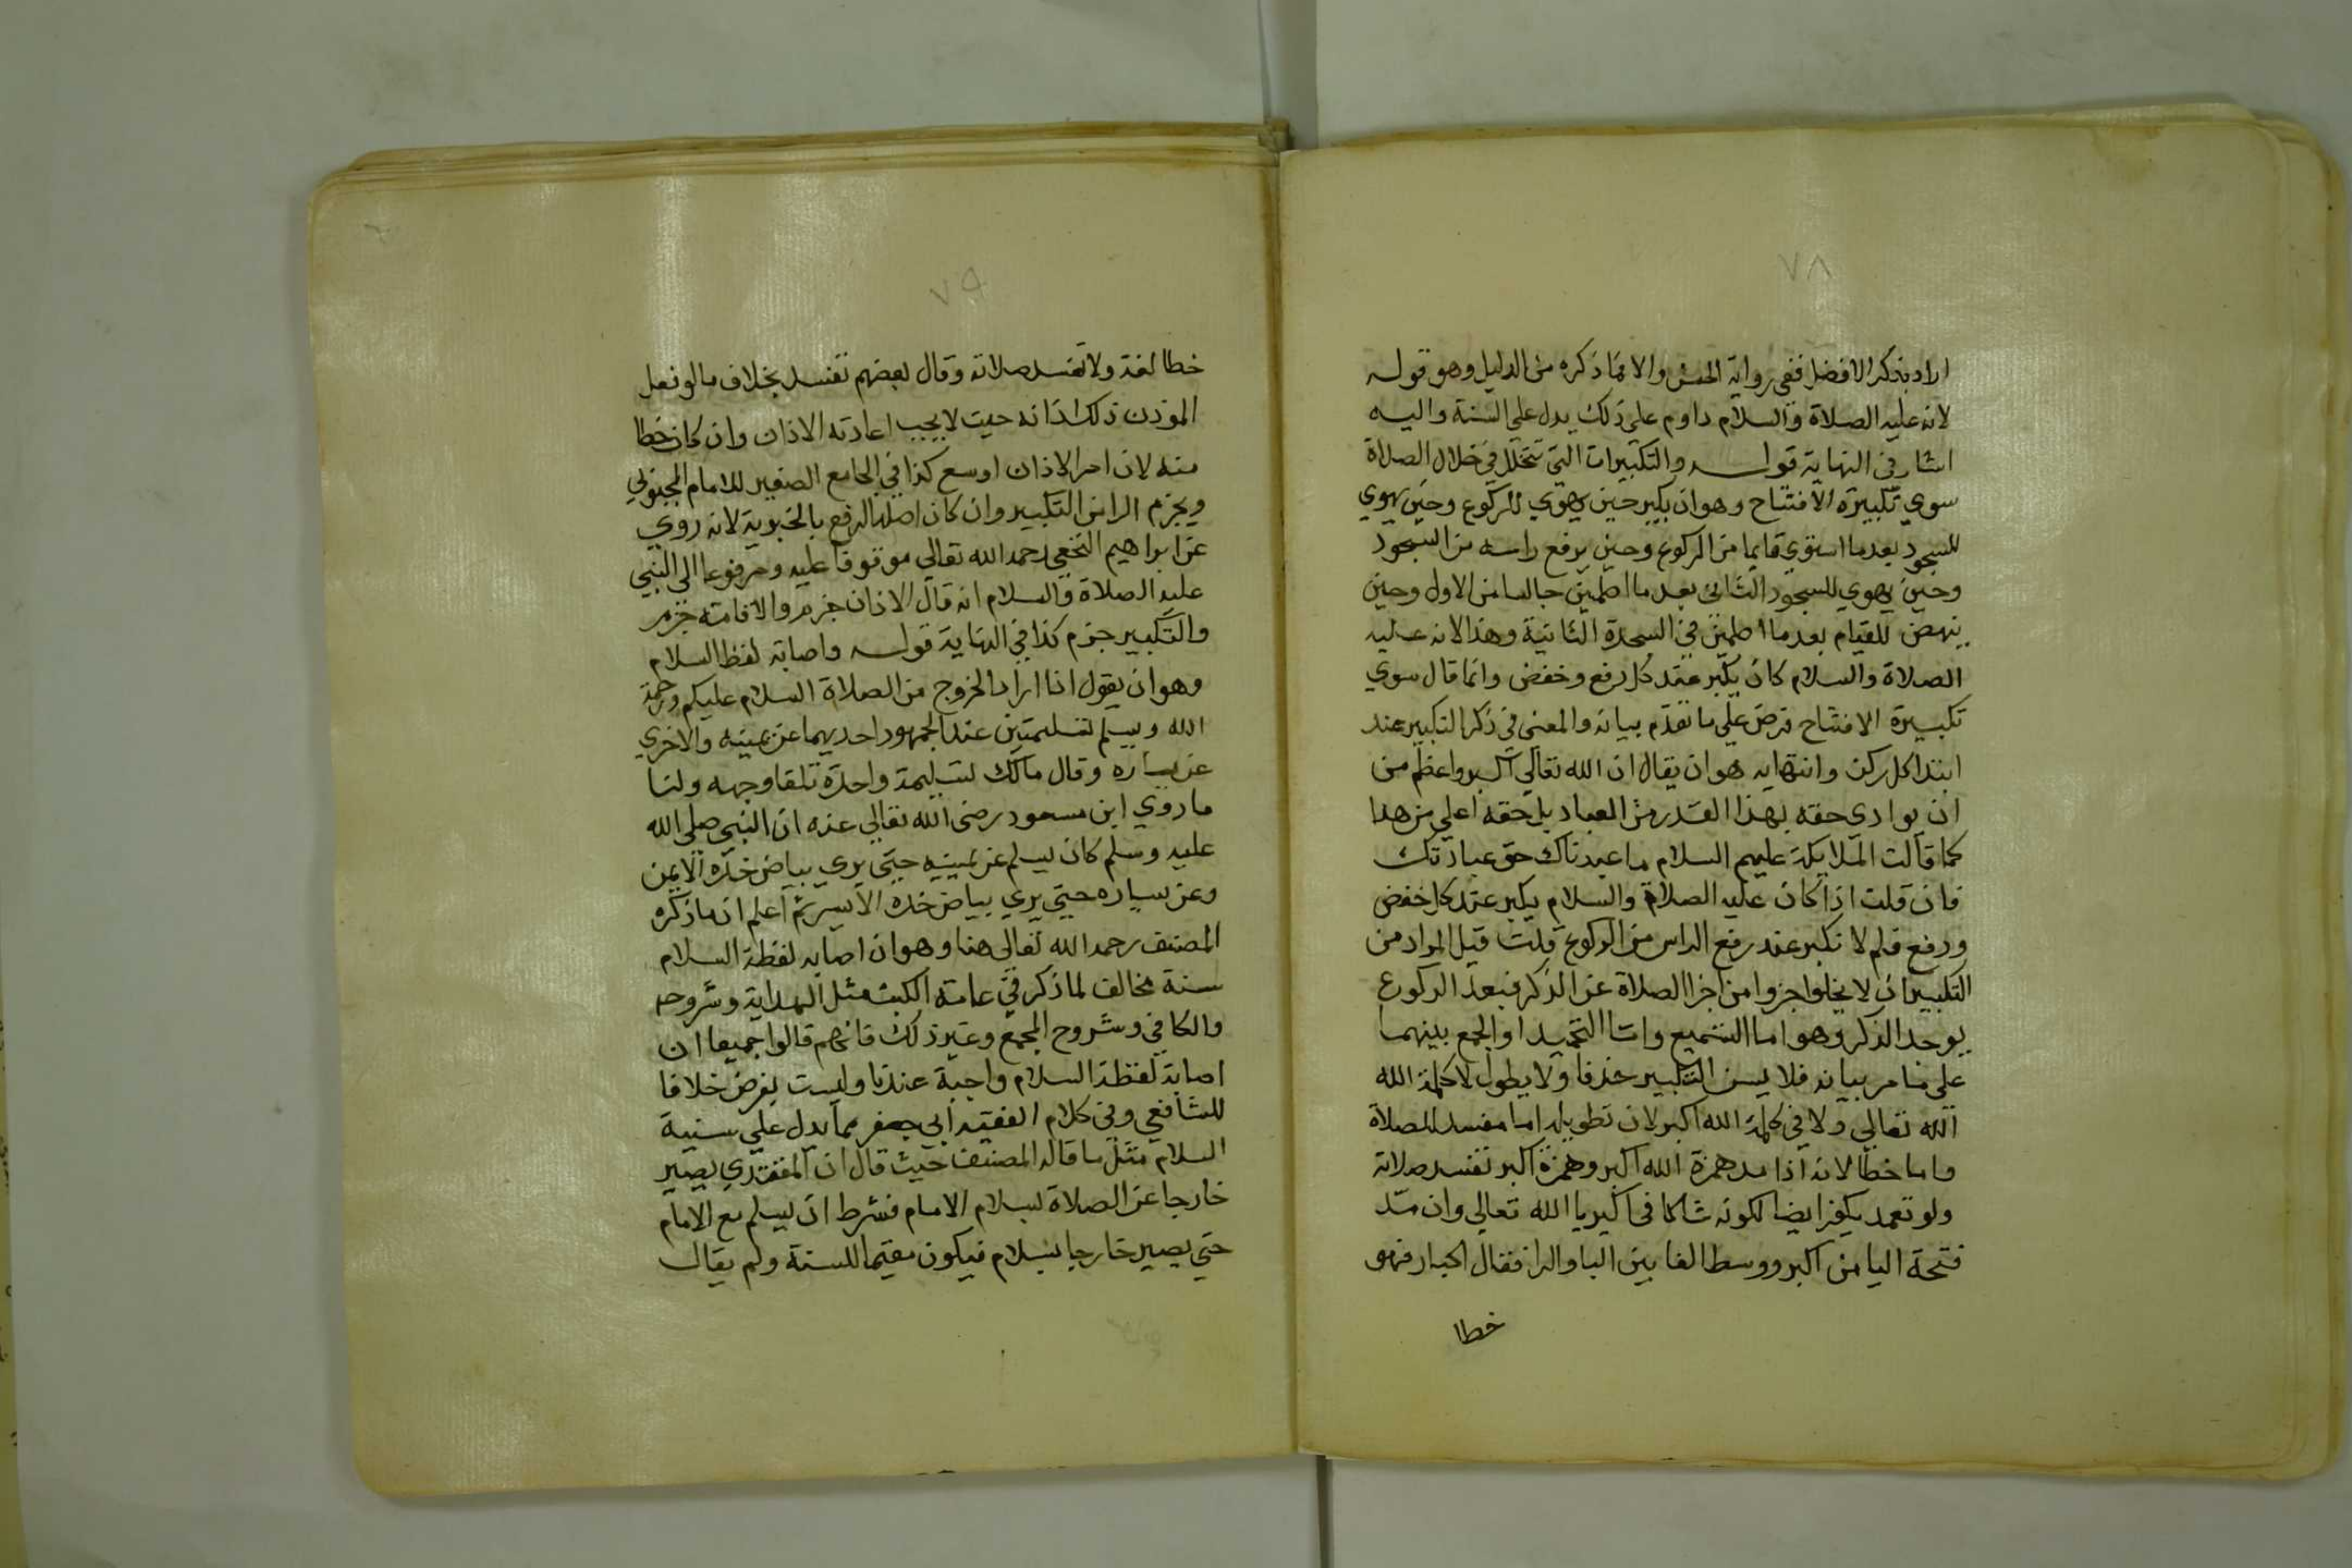 ٧٨
اراد بذكر الافضل ففي رواية الحسن والا فما ذكره من الدليل وهو قوله
لانه عليه الصلاة والسلام داوم على ذلك يدل على السنة واليه
اشار في النهاية قوله والتكبيرات التي تتخلل في خلال الصلاة
سوي تكبيرة الافتتاح وهو ان يكبر حين يهوي للركوع وحين يهوي
للسجود بعد ما استوي قايما من الركوع وحين يرفع راسه من السجود
وحين يهوي للسجود الثاني بعد ما اطمين جالسا من الاول وحين
ينهض للقيام بعد ما اطمين في السجدة الثانية وهذا لانه عليه
الصلاة والسلام كان يكبر عند كل رفع وخفض وانما قال سوي
تكبيرة الافتتاح فرض علي ما تقدم بيانه والمعنى في ذكر التكبير عند
ابتدا كل ركن وانتهايه هو ان يقال ان الله تعالي اكبر واعظم من
ان يوادي حقه بهذا القدر من العباد بل حقه اعلي من هذا
كما قالت الملايكة عليهم السلام ما عبدناك حق عبادتك
فان قلت اذا كان عليه الصلاة والسلام يكبر عند كل خفض
ورفع فلم لا تكبر عند رفع الراس من الركوع قلت قيل المراد من
التكبير ان لا يخلوا جزوا من اجزا الصلاة عن الذكر فبعد الركوع
يوجد الذكر وهو اما التسميع واما التحميد او الجمع بينهما
على ما مر بيانه فلا يسن التكبير حذفا ولا يطول لا كلمة الله
الله تعالي ولا في كلمة الله اكبر لان تطويله اما مفسد للصلاة
واما خطا لانه اذا مد همزة الله اكبر وهمزة اكبر تفسد صلاته
ولو تعمد يكفر ايضا لكونه شاكا في اكبريا الله تعالي وان مد
فتحة اليا من اكبر ووسط الفا بين البا والرا فقال اكبار فهو
خطا
٧٩
خطا لغة ولا تفسد صلاته وقال بعضهم تفسد بخلاف ما لو فعل
الموذن ذلك اذانه حيث لا يجب اعادته الاذان وان كان خطا
منه لان امر الاذان اوسع كذا في الجامع الصغير للامام المحبوبي
ويجزم الرا من التكبير وان كان اصله الرفع بالخبرية لانه روي
عن ابراهيم النخعي رحمه الله تعالي موقوفا عليه ومرفوعا الى النبي
عليه الصلاة والسلام انه قال الاذان جزم والاقامة جزم
والتكبير جزم كذا في النهاية قوله واصابة لفظ السلام
وهو ان يقول اذا اراد الخروج من الصلاة السلام عليكم ورحمة
الله ويسلم تسليمتين عند الجمهور احديهما عن يمينه والاخري
عن يساره وقال مالك تسليمة واحدة تلقا وجهه ولنا
ما روي ابن مسعود رضي الله تعالي عنه ان النبي صلى الله
عليه وسلم كان يسلم عن يمينه حتي يري بياض خده الايمن
وعن يساره حتي يري بياض خده الايسر ثم اعلم ان ما ذكره
المصنف رحمه الله تعالي هنا وهو ان اصابه لفظة السلام
سنة مخالف لما ذكر في عامة الكتب مثل الهداية وشروحه
والكافي وشروح المجمع وغير ذلك فانهم قالوا جميعا ان
اصابة لفظة السلام واجبة عندنا وليست بفرض خلافا
للشافعي وفي كلام الفقيه ابي جعفر مما يدل علي سنية
السلام مثل ما قاله المصنف حيث قال ان المقتدي يصير
خارجا عن الصلاة بسلام الامام فشرط ان يسلم مع الامام
حتي يصير خارجا بسلام فيكون مقيما للسنة ولم يقال